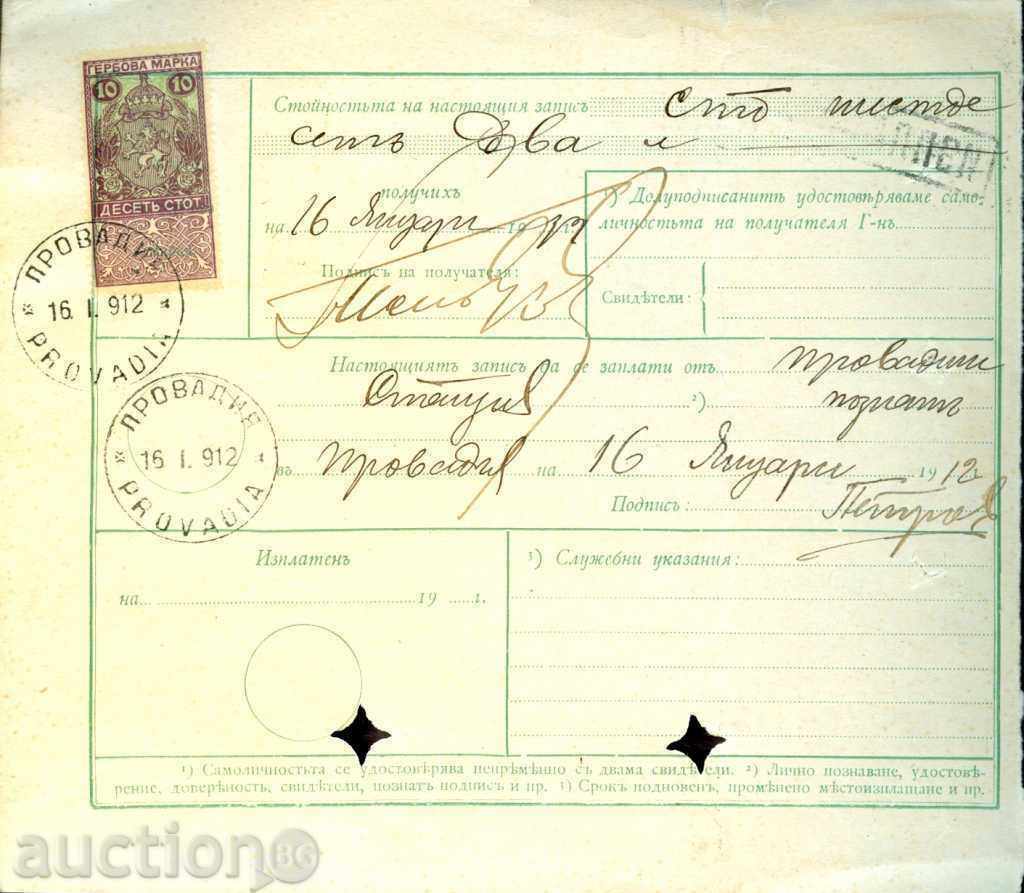 ГЕРБОВА МАРКА
10 10
ДЕСЕТЬ СТОТ.
Стойностьта на настоящия записъ сто шестде
сеть два л
получихъ
на 16 Януари 1912 г.
Подписъ на получателя:
¹) Долуподписанитѣ удостовѣряваме само-
личностьта на получателя Г-нъ
Свидѣтели:
ПРОВАДИЯ
16. I. 912
PROVADIA
Настоящиятъ записъ да се заплати отъ Провадий
Станция ²) познатъ
въ Провадия на 16 Януари 1912 г.
Подписъ: Петров
ПРОВАДИЯ
16 I. 912
PROVADIA
Изплатенъ
на 19 г.
³) Служебни указания:
¹) Самоличностьта се удостовѣрява непрѣмѣнно съ двама свидѣтели. ²) Лично познаване, удостовѣ-
рение, довѣреность, свидѣтели, познатъ подписъ и пр. ³) Срокъ подновенъ, промѣнено мѣстоизплащане и пр.
auction BG